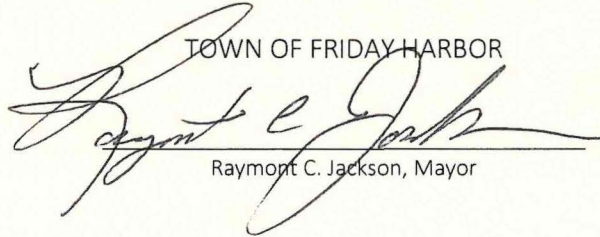 TOWN OF FRIDAY HARBOR
Raymont C. Jackson
Raymont C. Jackson, Mayor